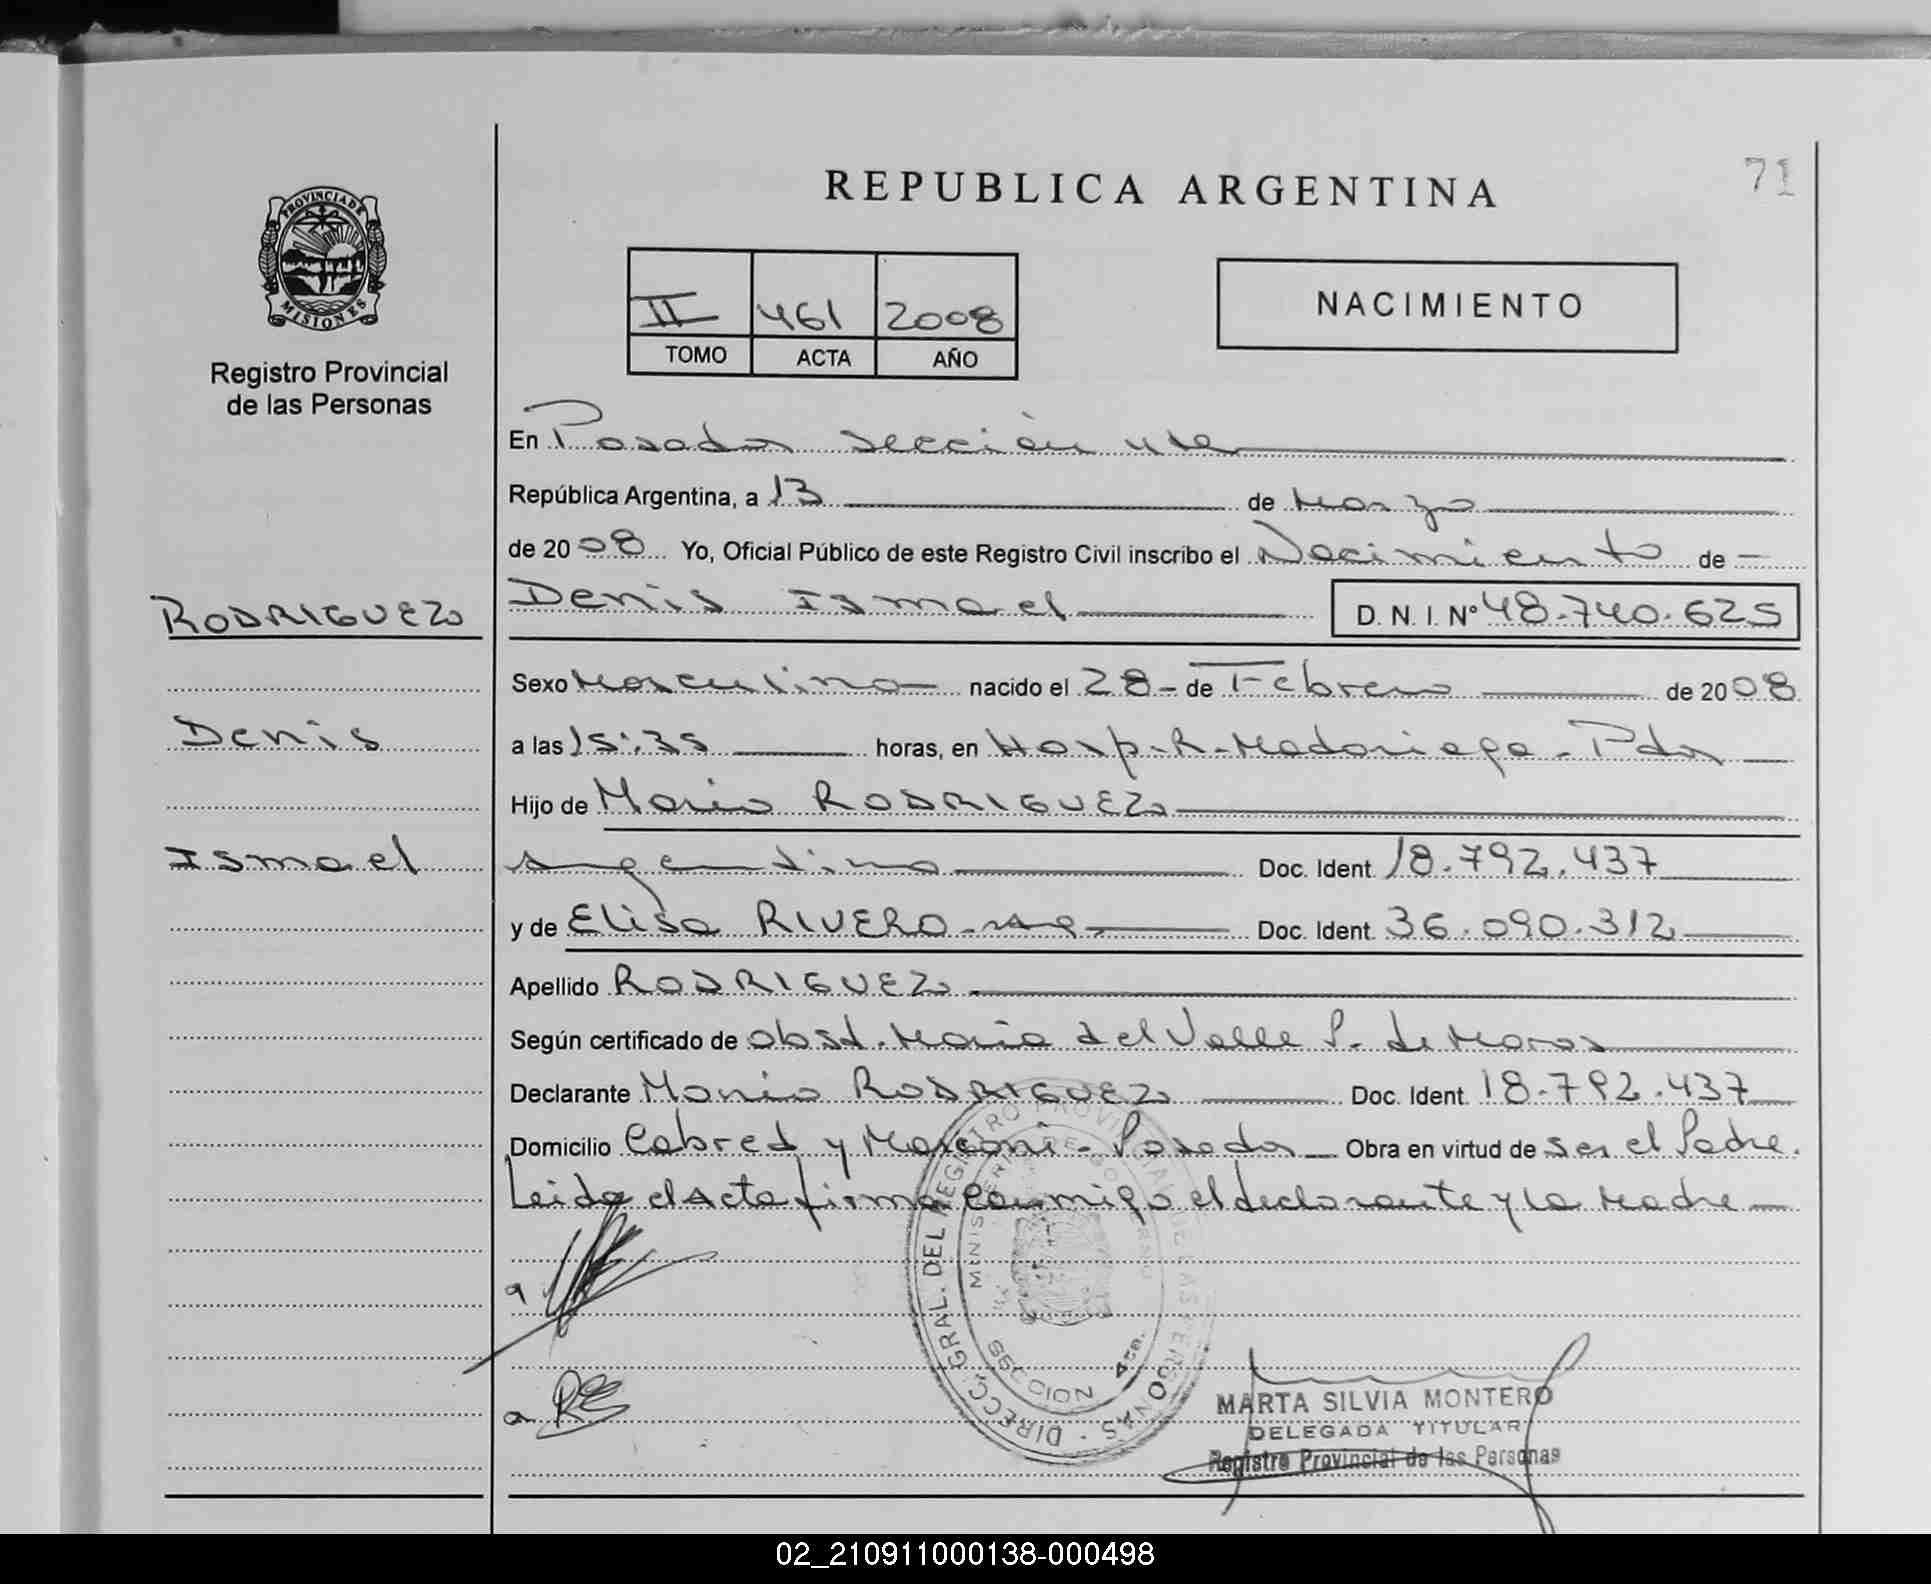 REPUBLICA ARGENTINA
71
PROVINCIA DE
MISIONES
Registro Provincial
de las Personas
II 461 2008
TOMO ACTA AÑO
NACIMIENTO
En Posadas sección 4ta
República Argentina, a 13 de Marzo
de 2008 Yo, Oficial Público de este Registro Civil inscribo el Nacimiento de
RODRIGUEZ
Denis Ismael D. N. I. Nº 48.740.625
Sexo Masculino nacido el 28 de Febrero de 2008
Denis
a las 15:35 horas, en Hosp. R. Madariaga - Pdas
Hijo de Mario RODRIGUEZ
Ismael
Argentino Doc. Ident. 18.792.437
y de Elisa RIVERO - Doc. Ident. 36.090.312
Apellido RODRIGUEZ
Según certificado de obst. Maria del Valle P. de
Declarante Mario RODRIGUEZ Doc. Ident. 18.792.437
Domicilio Cabred y Marconi - Posadas Obra en virtud de ser el Padre.
Leida el Acta firma conmigo el declarante y la Madre
DIRECC. GRAL. DEL REGISTRO PROVINCIAL DE LAS PERSONAS
SECCION 4ta.
MARTA SILVIA MONTERO
DELEGADA TITULAR
Registro Provincial de las Personas
02_210911000138-000498